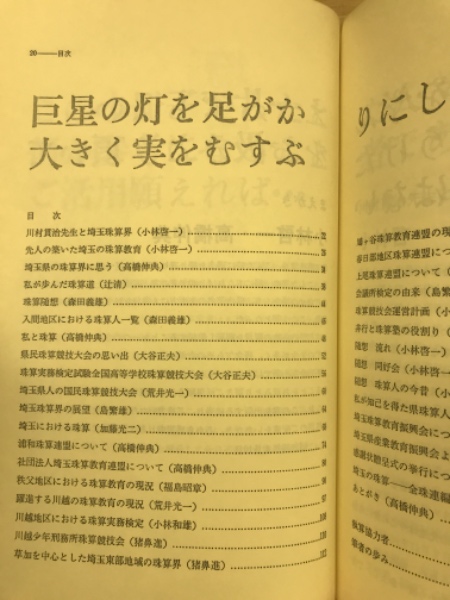 20——目次
巨星の灯を足がか
大きく実をむすぶ
目 次
川村貫治先生と埼玉珠算界(小林啓一)
先人の築いた埼玉の珠算教育(小林啓一)
埼玉県の珠算界に思う(高橋仲典)
私が歩んだ珠算道(辻清)
珠算随想(森田義雄)
入間地区における珠算人一覧(森田義雄)
私と珠算(高橋仲典)
県民珠算競技大会の思い出(大谷正夫)
珠算実務検定試験全国高等学校珠算競技大会(大谷正夫)
埼玉県人の国民珠算競技大会(荒井光一)
埼玉珠算界の展望(島繁雄)
埼玉における珠算(加藤光二)
浦和珠算連盟について(高橋仲典)
社団法人埼玉珠算教育連盟について(高橋仲典)
秩父地区における珠算教育の現況(福島昭章)
躍進する川越の珠算教育の現況(荒井光一)
川越地区における珠算実務検定(小林和雄)
川越少年刑務所珠算競技会(猪鼻進)
草加を中心とした埼玉東部地域の珠算界(猪鼻進) 112
りにし
ヶ谷珠算教育連盟の現
春日部地区珠算教育
上尾珠算連盟について(
会議所検定の由来(島繁
珠算競技会運営計画(小
非行と珠算塾の役割り(
随想 流れ(小林啓一)
随想 同好会(小林啓一
随想 珠算人の今昔(小
私が知己を得た県珠算人
埼玉珠算教育振興会につ
埼玉県産業教育振興会よ
感謝状贈呈式の挙行につ
埼玉の珠算——全珠連編
あとがき(高橋仲典)
協力者
筆者の歩み